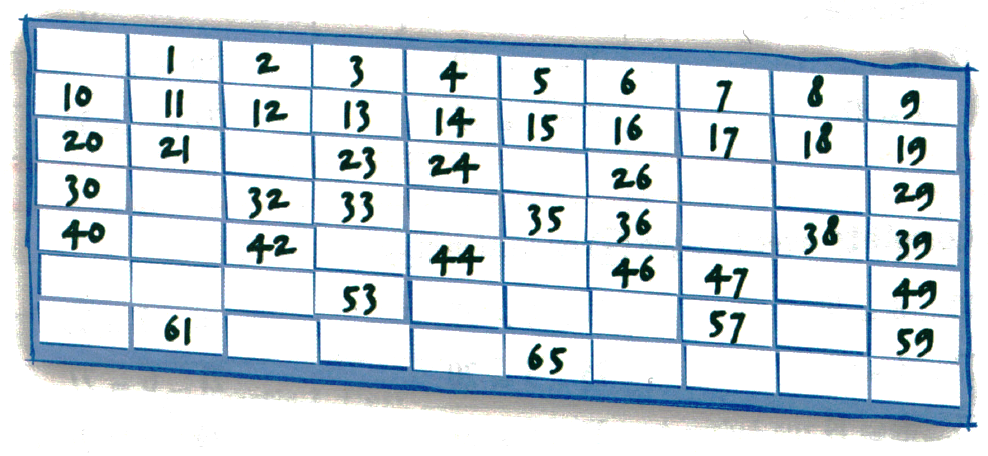 1 2 3 4 5 6 7 8 9
10 11 12 13 14 15 16 17 18 19
20 21 23 24 26 29
30 32 33 35 36 38 39
40 42 44 46 47 49
53 57 59
61 65